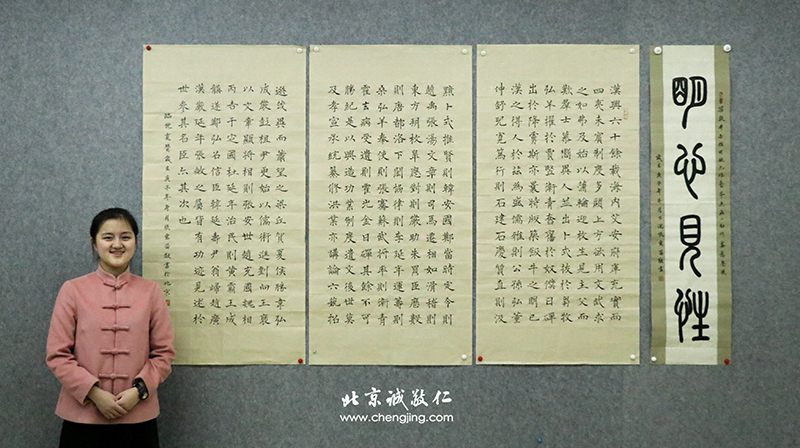 明心見性
漢興六十餘載海内艾安府庫充實而
四夷未賓制度多闕上方欲用文武求
之如弗及始以蒲輪迎枚生見主父而
歎羣士慕嚮異人並出卜式拔於芻牧
弘羊擢於賈豎衛青奮於奴僕日磾
出於降虜斯亦曩時版築飯牛之朋已
漢之得人於茲為盛儒雅則公孫弘董
仲舒兒寬篤行則石建石慶質直則汲
黯卜式推賢則韓安國鄭當時定令則
趙禹張湯文章則司馬遷相如滑稽則
東方朔枚皋應對則嚴助朱買臣曆數
則唐都洛下閎協律則李延年運籌則
桑弘羊奉使則張騫蘇武將率則衛青
霍去病受遺則霍光金日磾其餘不可
勝紀是以興造功業制度遺文後世莫
及孝宣承統纂脩洪業亦講論六藝招
選茂異而蕭望之梁丘賀夏侯勝韋弘
成嚴彭祖尹更始以儒術進劉向王褒
以文章顯將相則張安世趙充國魏相
丙吉于定國杜延年治民則黃霸王成
龔遂鄭弘召信臣韓延壽尹翁歸趙廣
漢嚴延年張敞之屬皆有功迹見述於
世參其名臣亦其次也
臨倪寬贊歲在庚子年
北京诚敬仁
www.chengjing.com